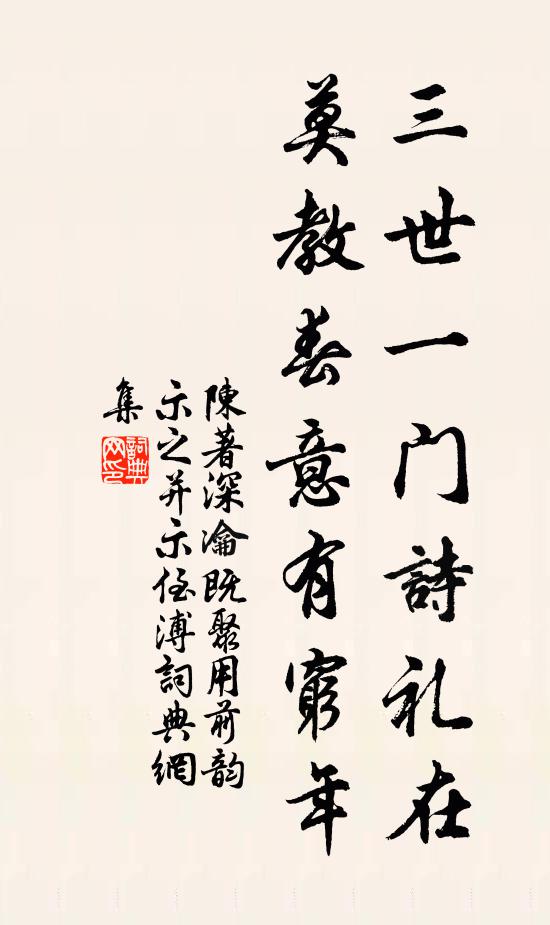 三世一门詩礼在
莫教春意有窮年
陳著深瀹既聚用前韵
示之并示侄溥詞典網
集
詞典网印